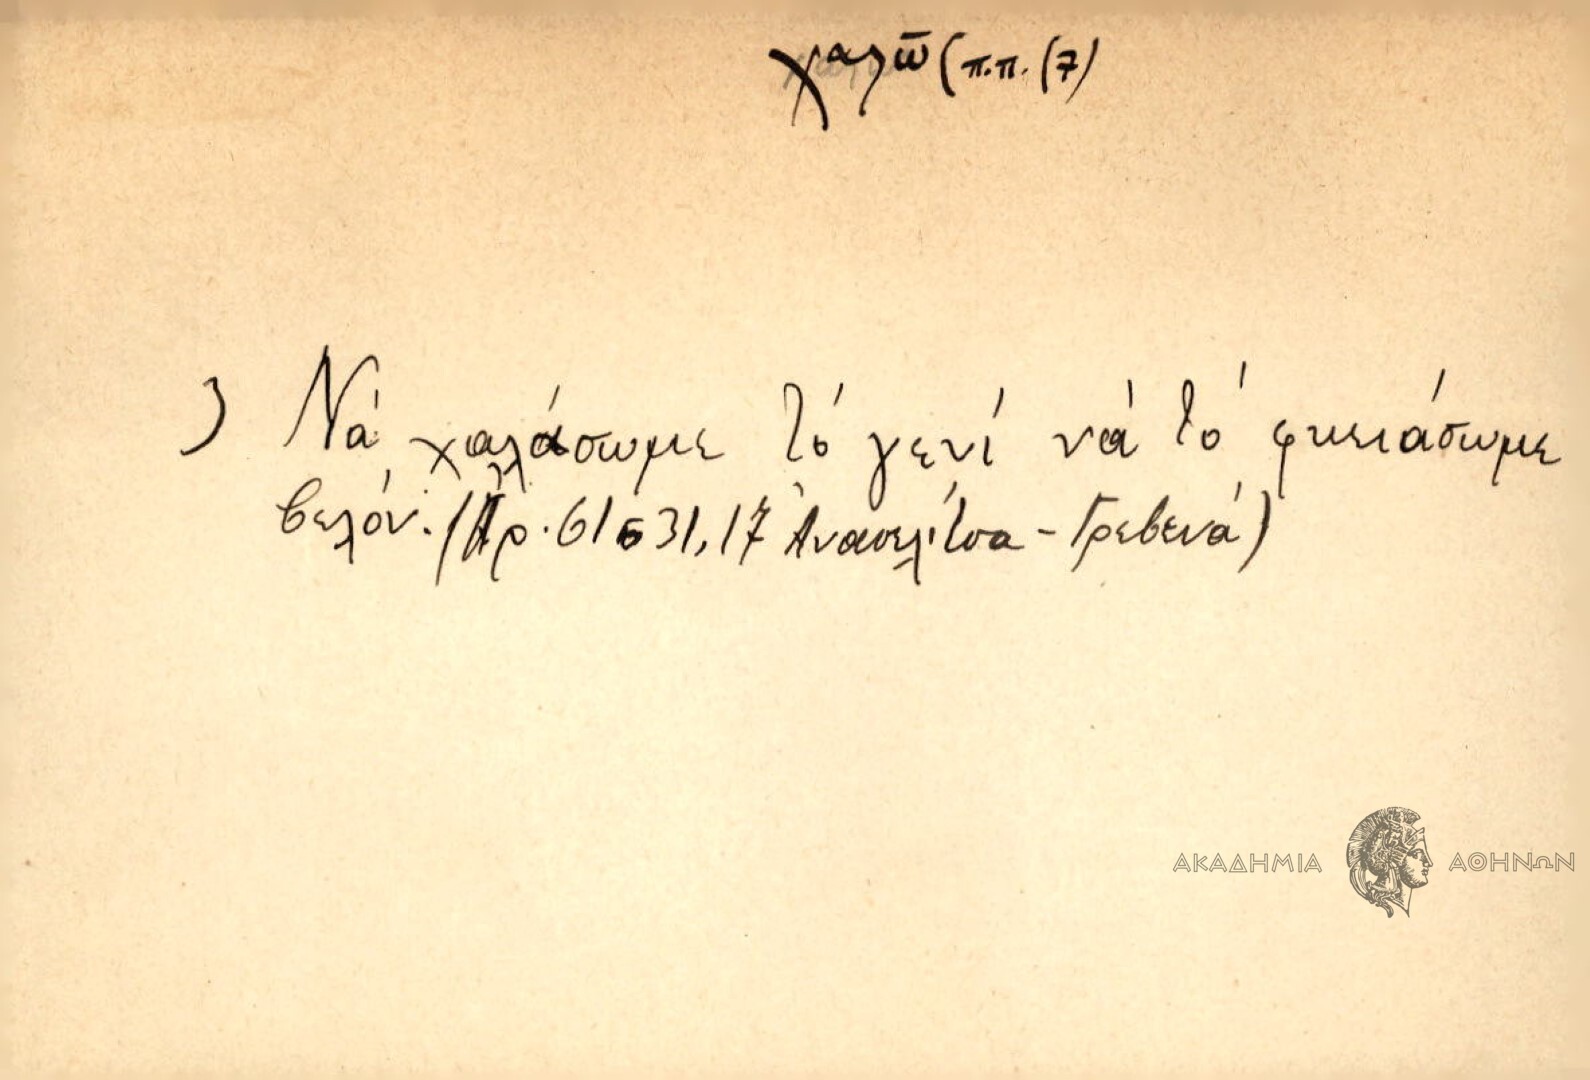 χαλῶ (π.π. (7)
) Νά χαλάσωμε τό γενί νά τό φκειάσωμε
βελόν. (Ἀρ. 61 31, 17 Ἀνασελίτσα - Γρεβενά)
ΑΚΑΔΗΜΙΑ ΑΘΗΝΩΝ